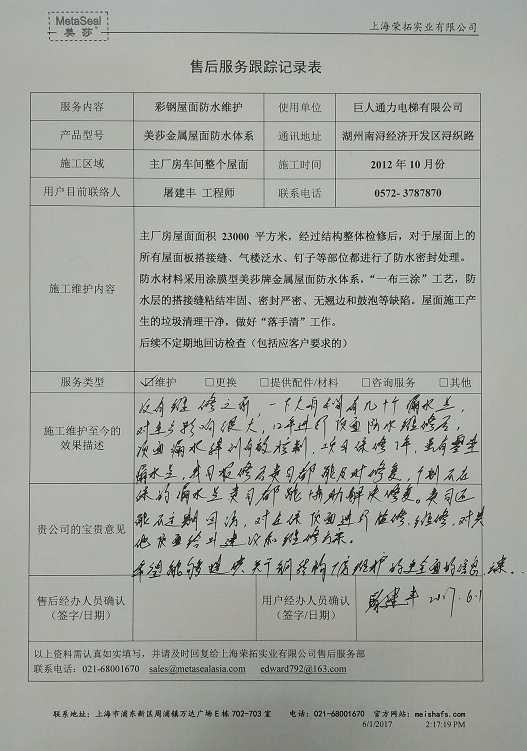 MetaSeal
美莎
上海荣拓实业有限公司
售后服务跟踪记录表
服务内容 彩钢屋面防水维护 使用单位 巨人通力电梯有限公司
产品型号 美莎金属屋面防水体系 通讯地址 湖州南浔经济开发区浔织路
施工区域 主厂房车间整个屋面 施工时间 2012 年 10 月份
用户目前联络人 屠建丰 工程师 联系电话 0572- 3787870
施工维护内容
主厂房屋面面积 23000 平方米，经过结构整体检修后，对于屋面上的
所有屋面板搭接缝、气楼泛水、钉子等部位都进行了防水密封处理。
防水材料采用涂膜型美莎牌金属屋面防水体系，“一布三涂”工艺，防
水层的搭接缝粘结牢固、密封严密、无翘边和鼓泡等缺陷。屋面施工产
生的垃圾清理干净，做好“落手清”工作。
后续不定期地回访检查（包括应客户要求的）
服务类型 ☑维护 □更换 □提供配件/材料 □咨询服务 □其他
施工维护至今的
效果描述
没有维修之前，一下大雨就有几十个漏水点，
对生产影响很大，12年进行顶面防水维修后，
顶面漏水得到有效控制，项目保修
漏水点，贵司报修后贵司都能及时修复，
贵公司的宝贵意见
保的漏水点贵司都能协助解决修复。贵司还
能不定期回访，对在保顶面进行检修、维修，对其
他顶面给出建议和维修方案。
希望能够提供关于钢结构厂房维护的更全面的信息
售后经办人员确认
（签字/日期）
用户经办人员确认
（签字/日期）
屠建丰 2017.6.1
以上资料需认真如实填写，并请及时回复给上海荣拓实业有限公司售后服务部
联系电话：021-68001670 sales@metasealasia.com edward792@163.com
联系地址：上海市浦东新区周浦镇万达广场 E 栋 702-703 室 电话：021-68001670 官方网站：meishafs.com
6/1/2017 2:17:19 PM